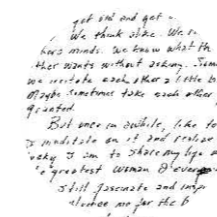 get old and get
We think alike. We r
hers minds. We know what th
ther wants without asking. Some
we irritate each other a little b
Maybe sometimes take each other
granted.
But once in awhile, like to
I meditate on it and realize
ucky I am to share my life w
e greatest woman I ever
still fascinate and inspi
fluence me for the b